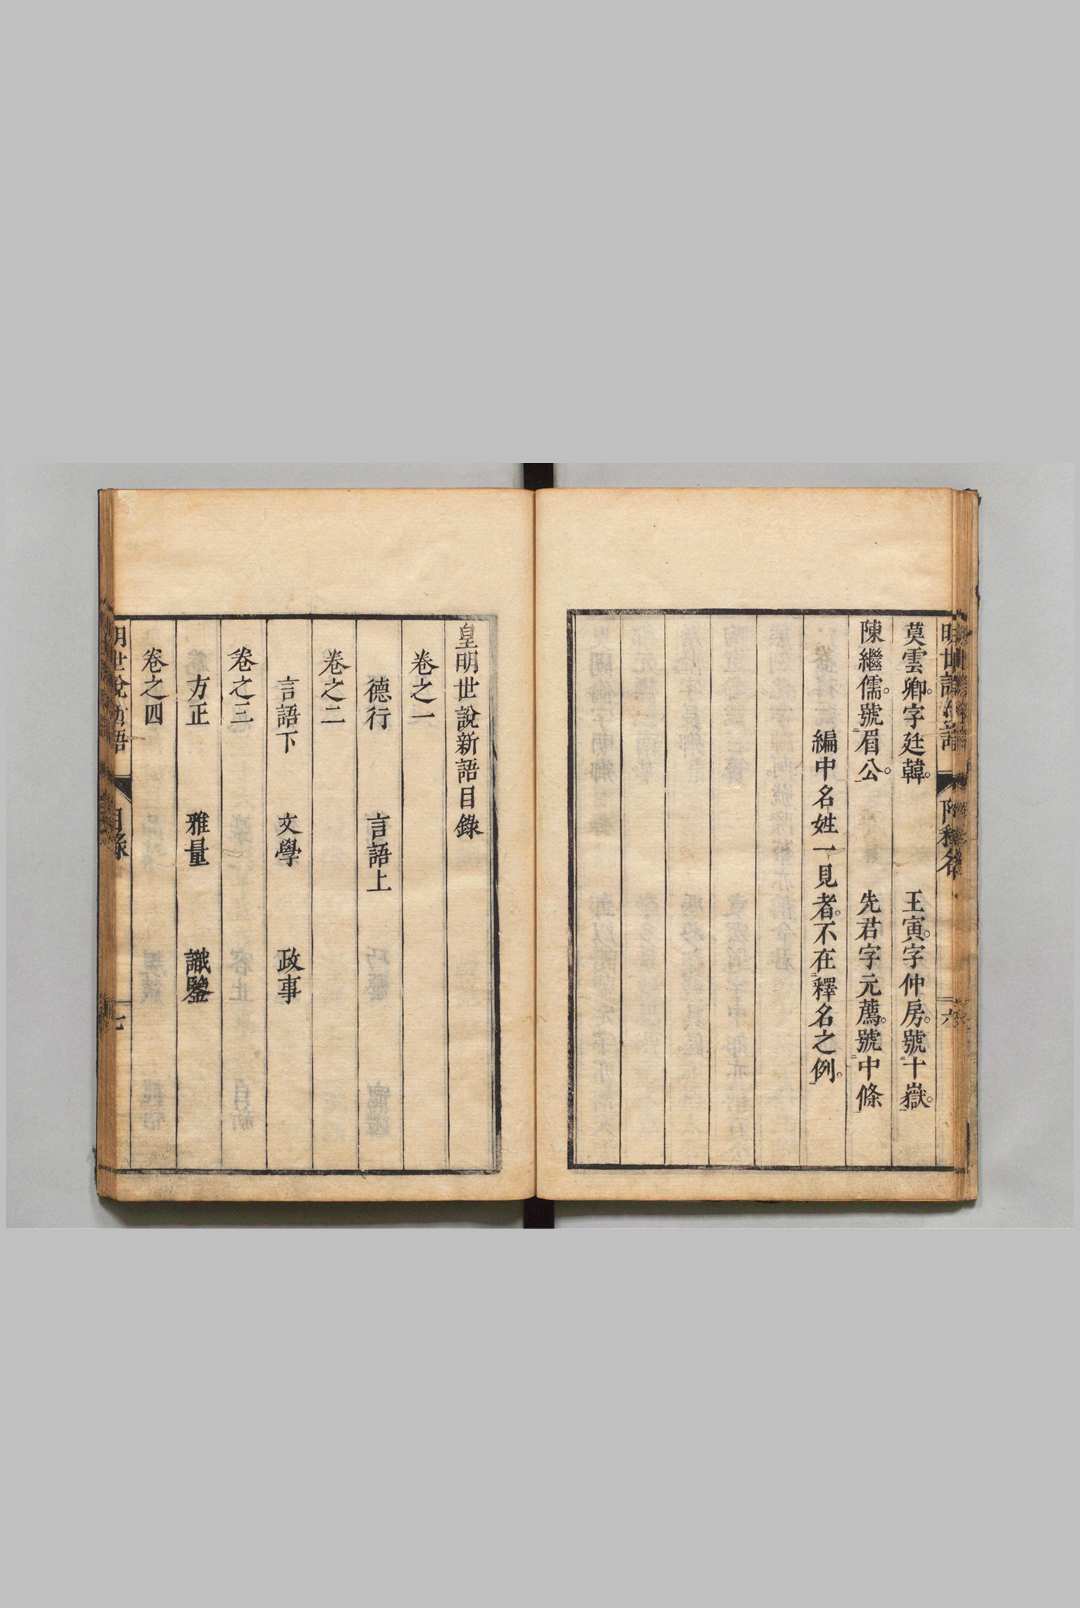 莫雲卿。字廷韓。 王寅。字仲房。號十嶽。
陳繼儒。號眉公。 先君字元薦。號中條
編中名姓一見者。不在釋名之例。
皇明世說新語目錄
卷之一
德行 言語上
卷之二
言語下 文學 政事
卷之三
方正 雅量 識鑒
卷之四
目錄
七